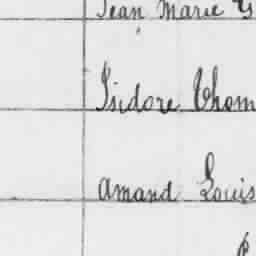 Jean Marie
Isidore Thom
Amand Louis